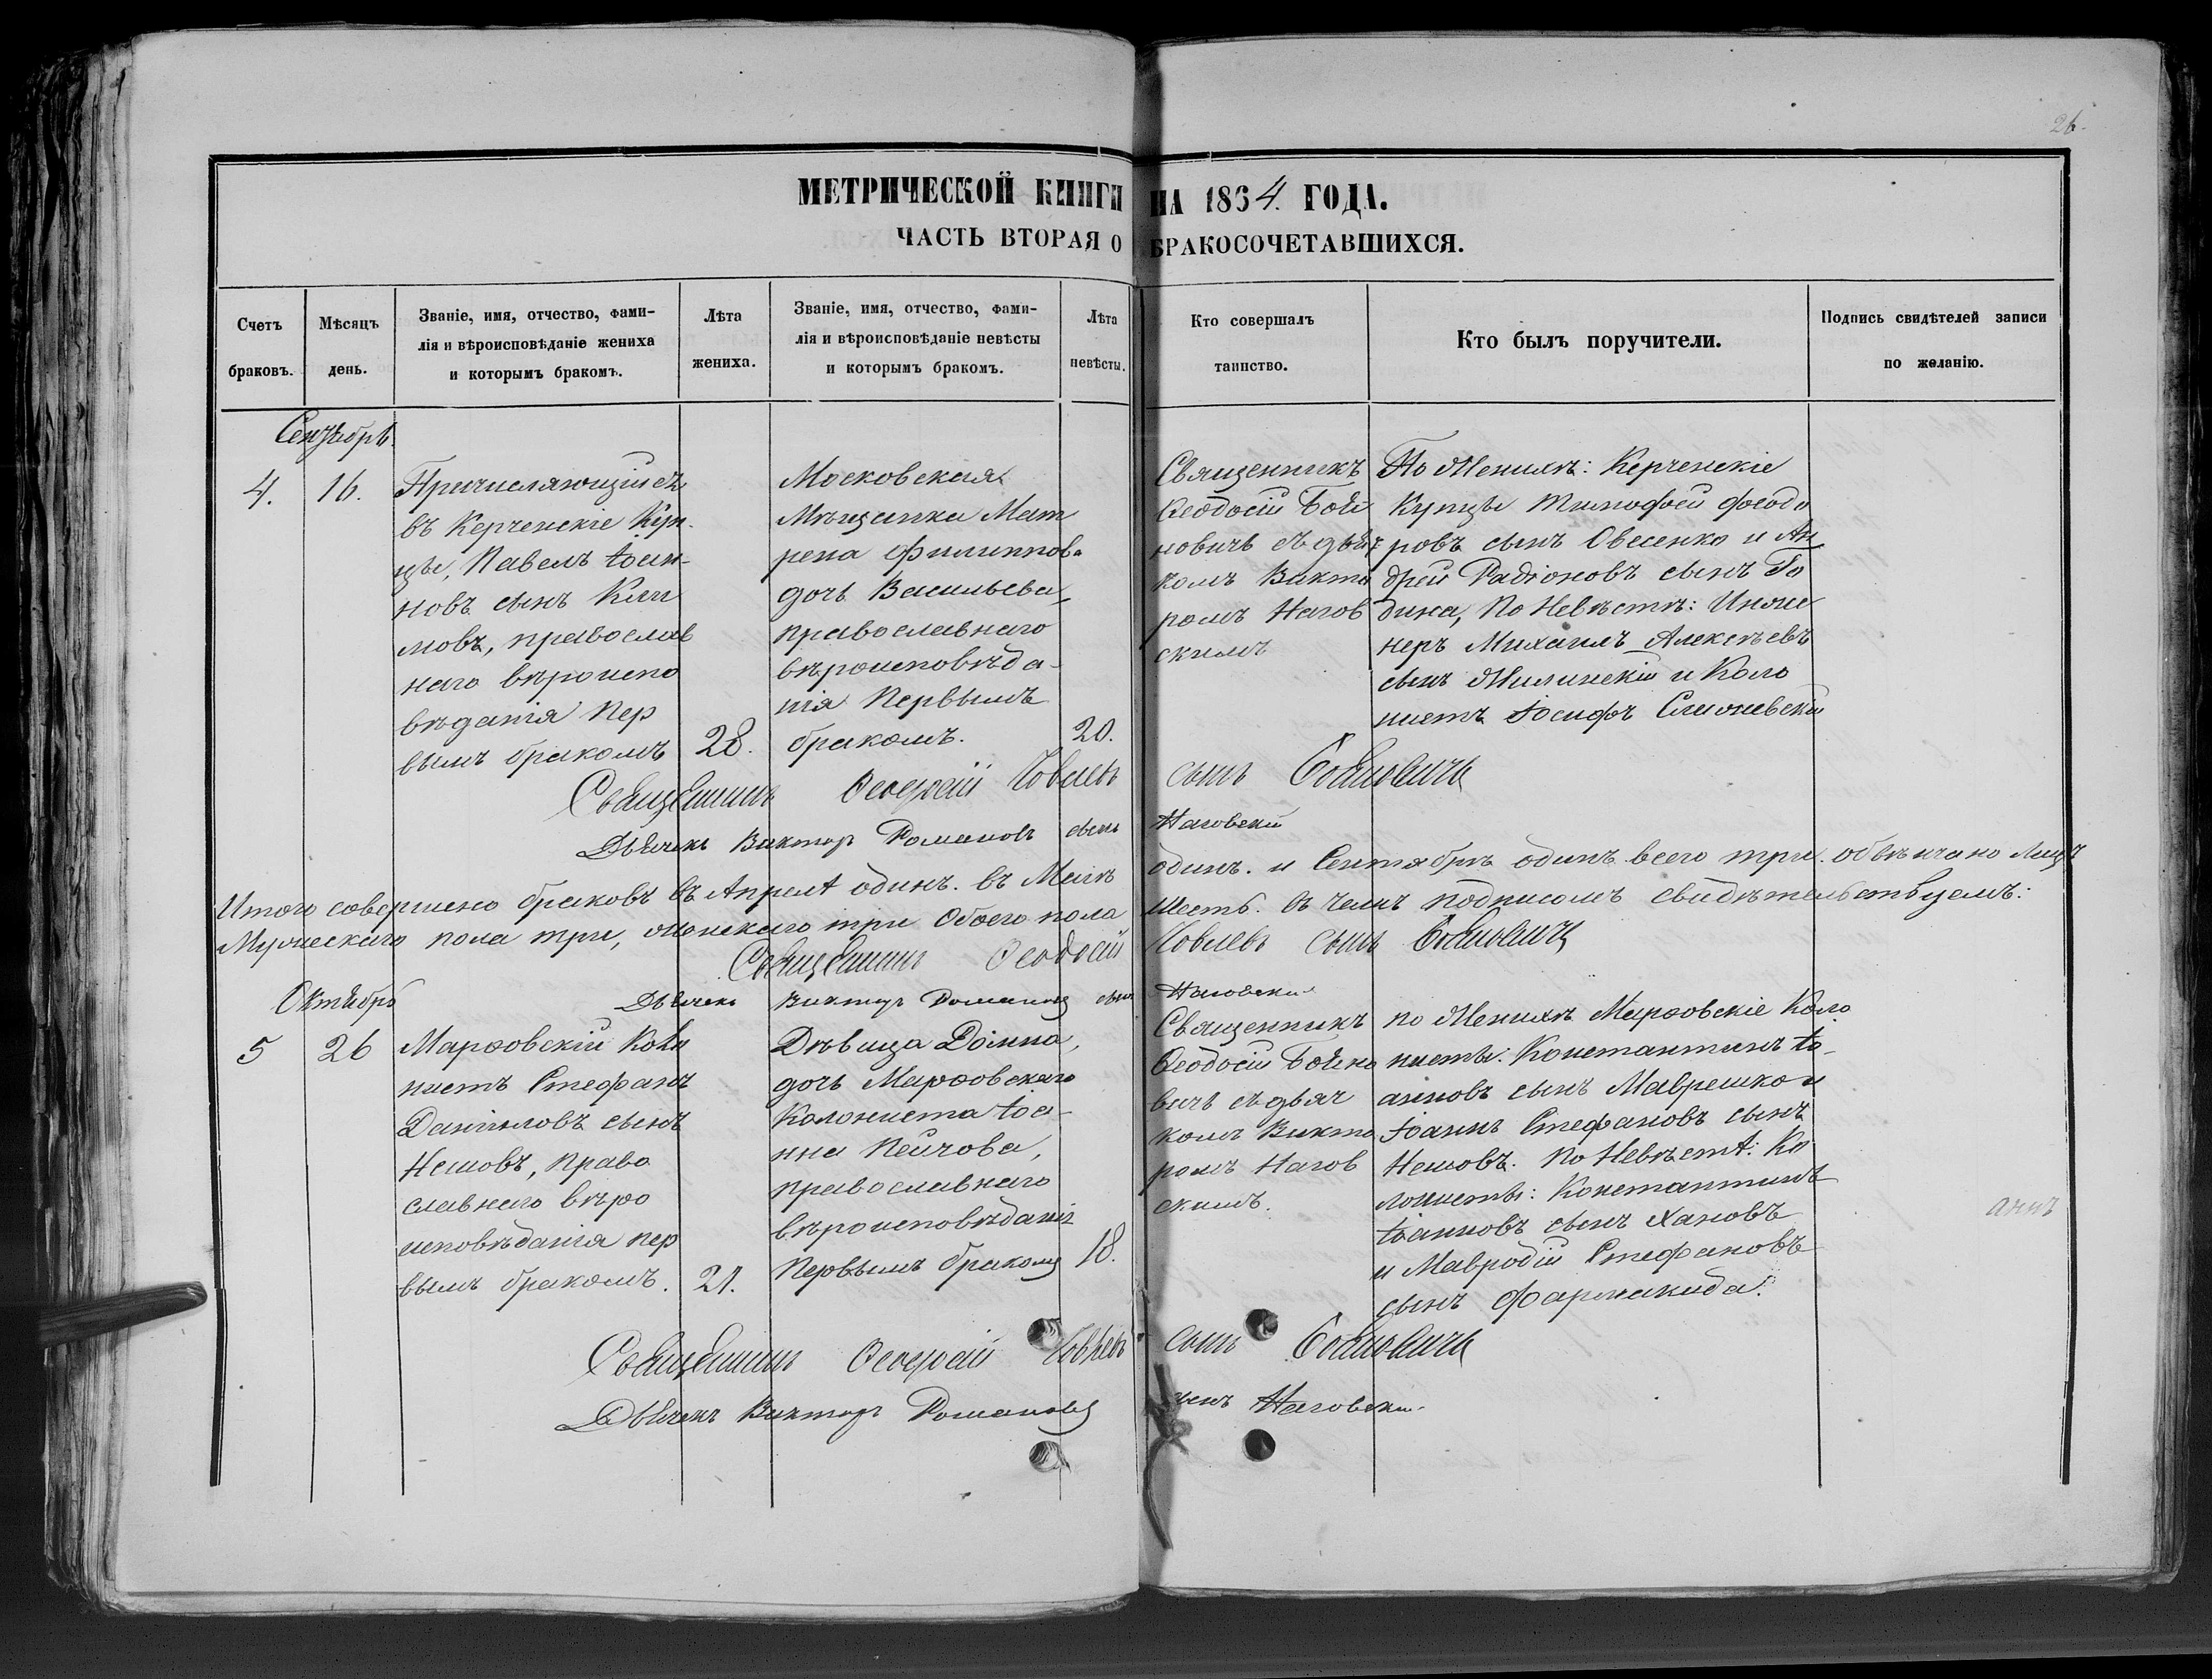 26.
МЕТРИЧЕСКОЙ КНИГИ НА 1864. ГОДА.
ЧАСТЬ ВТОРАЯ О БРАКОСОЧЕТАВШИХСЯ.
Счетъ
браковъ.
Мѣсяцъ
день.
Званіе, имя, отчество, фами-
лія и вѣроисповѣданіе жениха
и которымъ бракомъ.
Лѣта
жениха.
Званіе, имя, отчество, фами-
лія и вѣроисповѣданіе невѣсты
и которымъ бракомъ.
Лѣта
невѣсты.
Кто совершалъ
таинство.
Кто былъ поручители.
Подпись свидѣтелей записи
по желанію.
Сентябрь.
4.
16.
Причисляющійся
въ Керченскіе Куп-
цы, Павелъ Іоан-
новъ сынъ Кли
мовъ, православ
наго вѣроиспо
вѣданія Пер
вымъ бракомъ
28.
Московская
Мѣщанка Мат
рена Филиппова
дочь Васильева,
православнаго
вѣроисповѣда-
нія Первымъ
бракомъ.
20.
Священникъ
Ѳеодосій Бой
новичъ съ дьяч
комъ Викто
ромъ Нагов
скимъ
По Женихѣ: Керченскіе
Купцы Тимофей Феодо
ровъ сынъ Овсенко и Ан
дрей Радіоновъ сынъ Го
дина, По Невѣстѣ: Инже
неръ Михаилъ Алексѣевъ
сынъ Жилинскій и Коло
нистъ Іосифъ
Священникъ Ѳеодосій Іовлевъ сынъ Бойновичъ
Дьячекъ Викторъ Романовъ сынъ Наговскій
Итого совершено браковъ въ Апрелѣ одинъ. въ Маіѣ одинъ. и Сентябрѣ одинъ всего три. обвѣнчано лицъ
Мужескаго пола три, женскаго три Обоего пола шесть. Въ чемъ подписомъ свидѣтельствуемъ:
Священникъ Ѳеодосій Іовлевъ сынъ Бойновичъ
Дьячекъ Викторъ Романовъ сынъ Наговскій
Октябрь
5
26
Марѳовскій Коло
нистъ Стефанъ
Даніиловъ сынъ
Неновъ, Право
славнаго вѣро
исповѣданія пер
вымъ бракомъ.
21.
Дѣвица Домна,
дочь Марѳовскаго
Колониста Іоа-
нна Пейчова,
православнаго
вѣроисповѣданія
Первымъ бракомъ
18.
Священникъ
Ѳеодосій Бойно
вичъ съ дьяч
комъ Викто
ромъ Нагов
скимъ.
по Женихѣ Марѳовскіе Коло
нисты: Константинъ Іо-
анновъ сынъ Маврешко и
Іоаннъ Стефановъ сынъ
Неновъ. По Невѣстѣ: Ко
лонисты: Константинъ
Іоанновъ сынъ Хановъ
и Мавродій Стефановъ
сынъ Фармакида.
Священникъ Ѳеодосій Іовлевъ сынъ Бойновичъ
Дьячекъ Викторъ Романовъ сынъ Наговскій